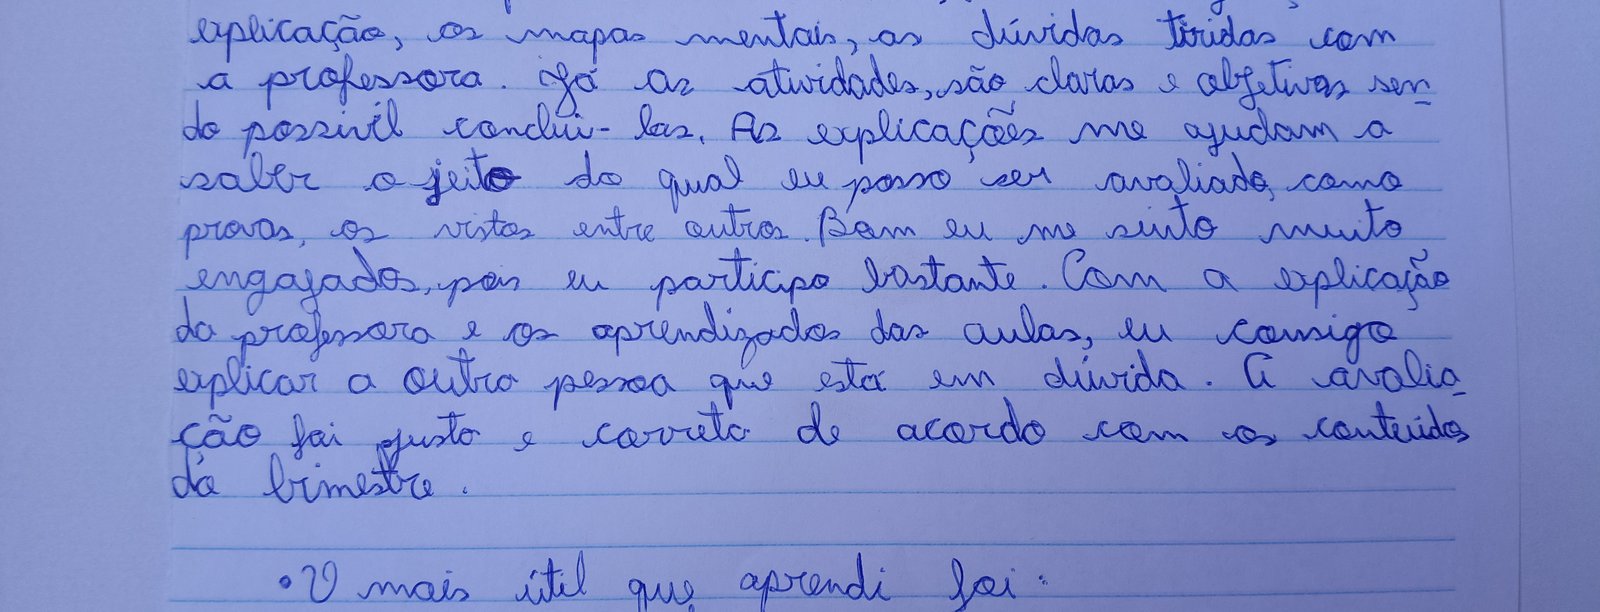 explicação, os mapas mentais, as dúvidas tiridas com
a professora. Já as atividades, são claras e objetivas sen-
do possivil conclui-las. As explicações me ajudam a
saber o jeito do qual eu posso ser avaliado, como
provas, os vistos entre outros. Bom eu me sinto muito
engajados, pois eu participo bastante. Com a explicação
da professora e os aprendizados das aulas, eu consigo
explicar a outra pessoa que está em dúvida. A avalia-
ção foi justa e correta de acordo com os conteúdos
do bimestre.
• O mais útil que aprendi foi: